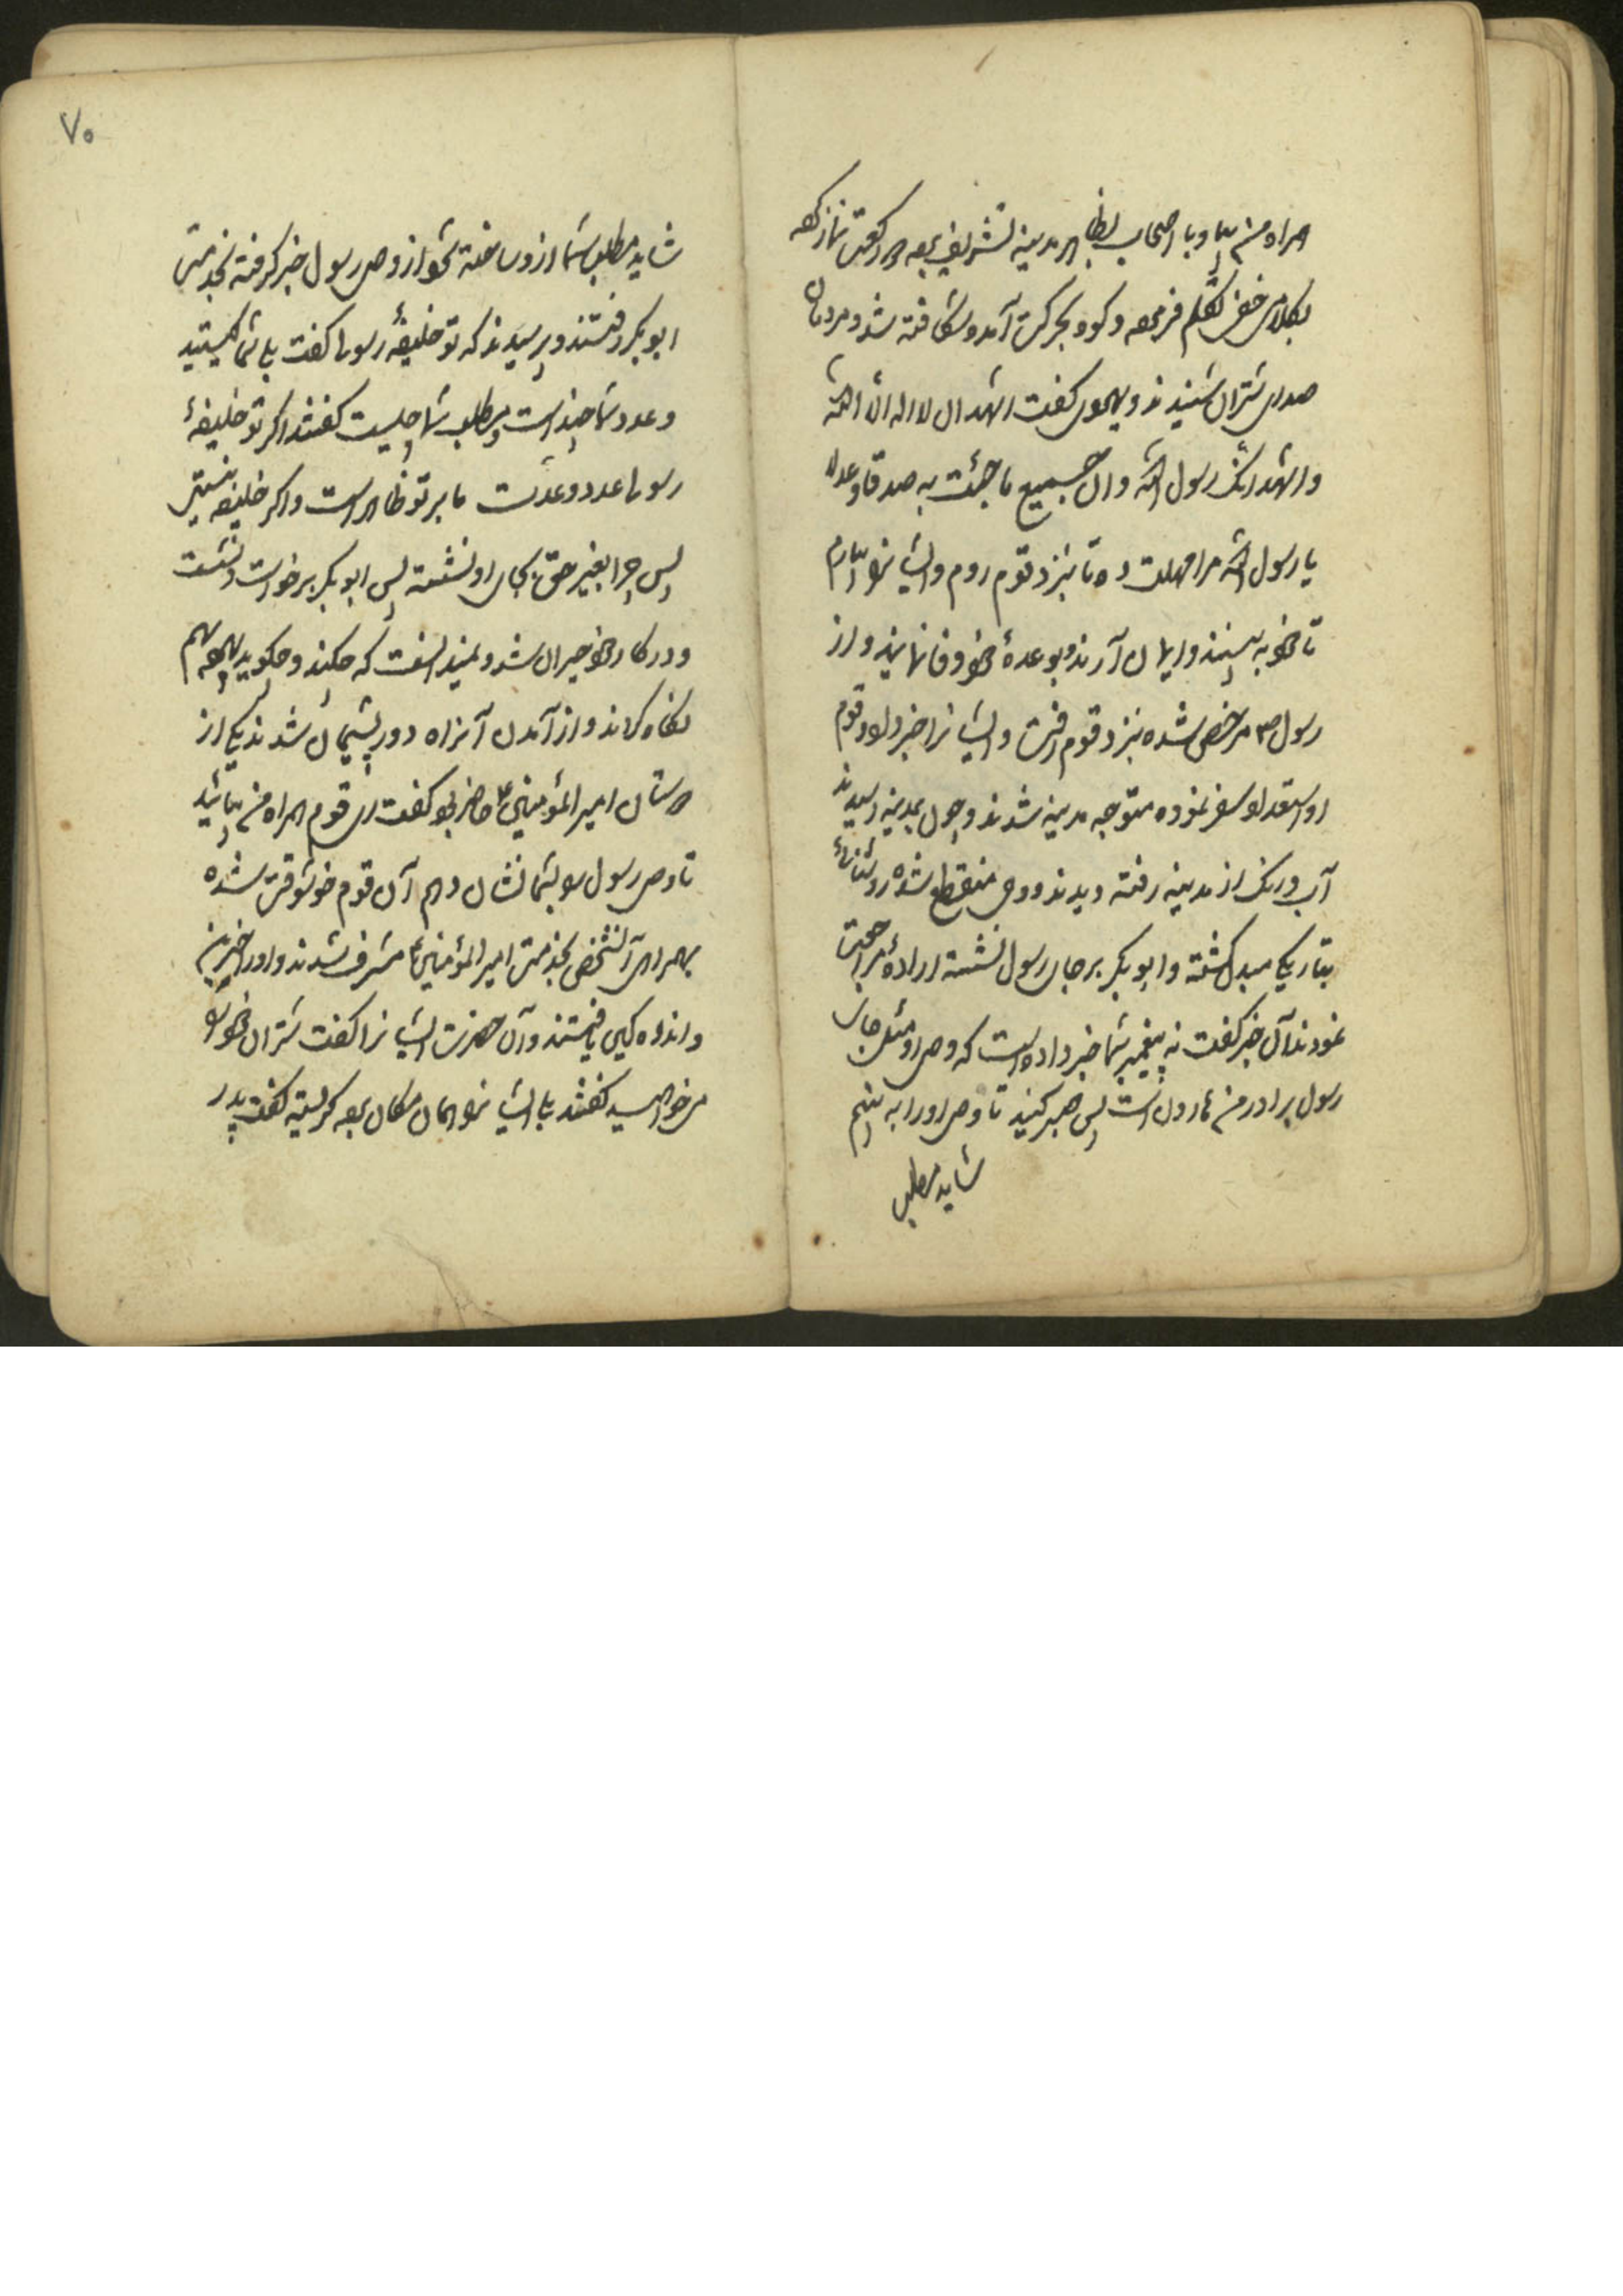 همراه من بیا و با اصحاب بظاهر مدینه تشریف برده دو رکعت نماز کرده
بکلامی خفی تکلم فرموده و کوه بحرکت آمد و شکافته شد و مردمان
صدای شتران شنیدند و یهودی گفت اشهد ان لا اله الا الله
و اشهد انک رسول الله و ان جمیع ما جئت به صدقا و عدلا
یا رسول الله مرا مهلت ده تا بنزد قوم روم و ایشانرا بیارم
تا خود به بینند و ایمان آرند و بوعدهٔ خود وفا نمایند و از
رسول ص مرخص شده بنزد قوم رفت و ایشانرا خبر داد و قوم
او استعداد سفر نموده متوجه مدینه شدند و چون بمدینه رسیدند
آب و رنگ از مدینه رفته دیدند و وحی منقطع شده روشنائی
بتاریکی مبدل گشته و ابو بکر بر جای رسول نشسته ارادهٔ مراجعت
نمودند آن خبر گفت نه پیغمبر شما خبر داده است که وصی او مثل جای
رسول برادر من هارون است پس صبر کنید تا وصی او را به بینیم
شاید مطلب
۷۰
شاید مطلب شما ازو ساخته شود از وصی رسول خبر گرفته بخدمت
ابو بکر رفتند و پرسیدند که تو خلیفهٔ رسولی گفت بلی شما کیستید
و عدد شما چند است و مطلب شما چیست گفتند اگر تو خلیفهٔ
رسولی عدد و عدت ما بر تو ظاهر است و اگر خلیفه نیستی
پس چرا بغیر حق بجای او نشسته پس ابو بکر برخواست و نشست
و در کار خود حیران شد و نمیدانست که چکند و چکوید بهم
نگاه کردند و از آمدن آنراه دور پشیمان شدند یکی از
دوستان امیر المؤمنین ع حاضر بود گفت ای قوم همراه من بیائید
تا وصی رسول را بشما نشان دهم آن قوم خوشوقت شده
بهمراهی آنشخص بخدمت امیر المؤمنین ع مشرف شدند و او را حزین
و اندوه کین یافتند و آن حضرت ایشانرا گفت شتران خود را
میخواهید گفتند بلی ایشانرا بهمان مکان برده گریسته گفت پدر